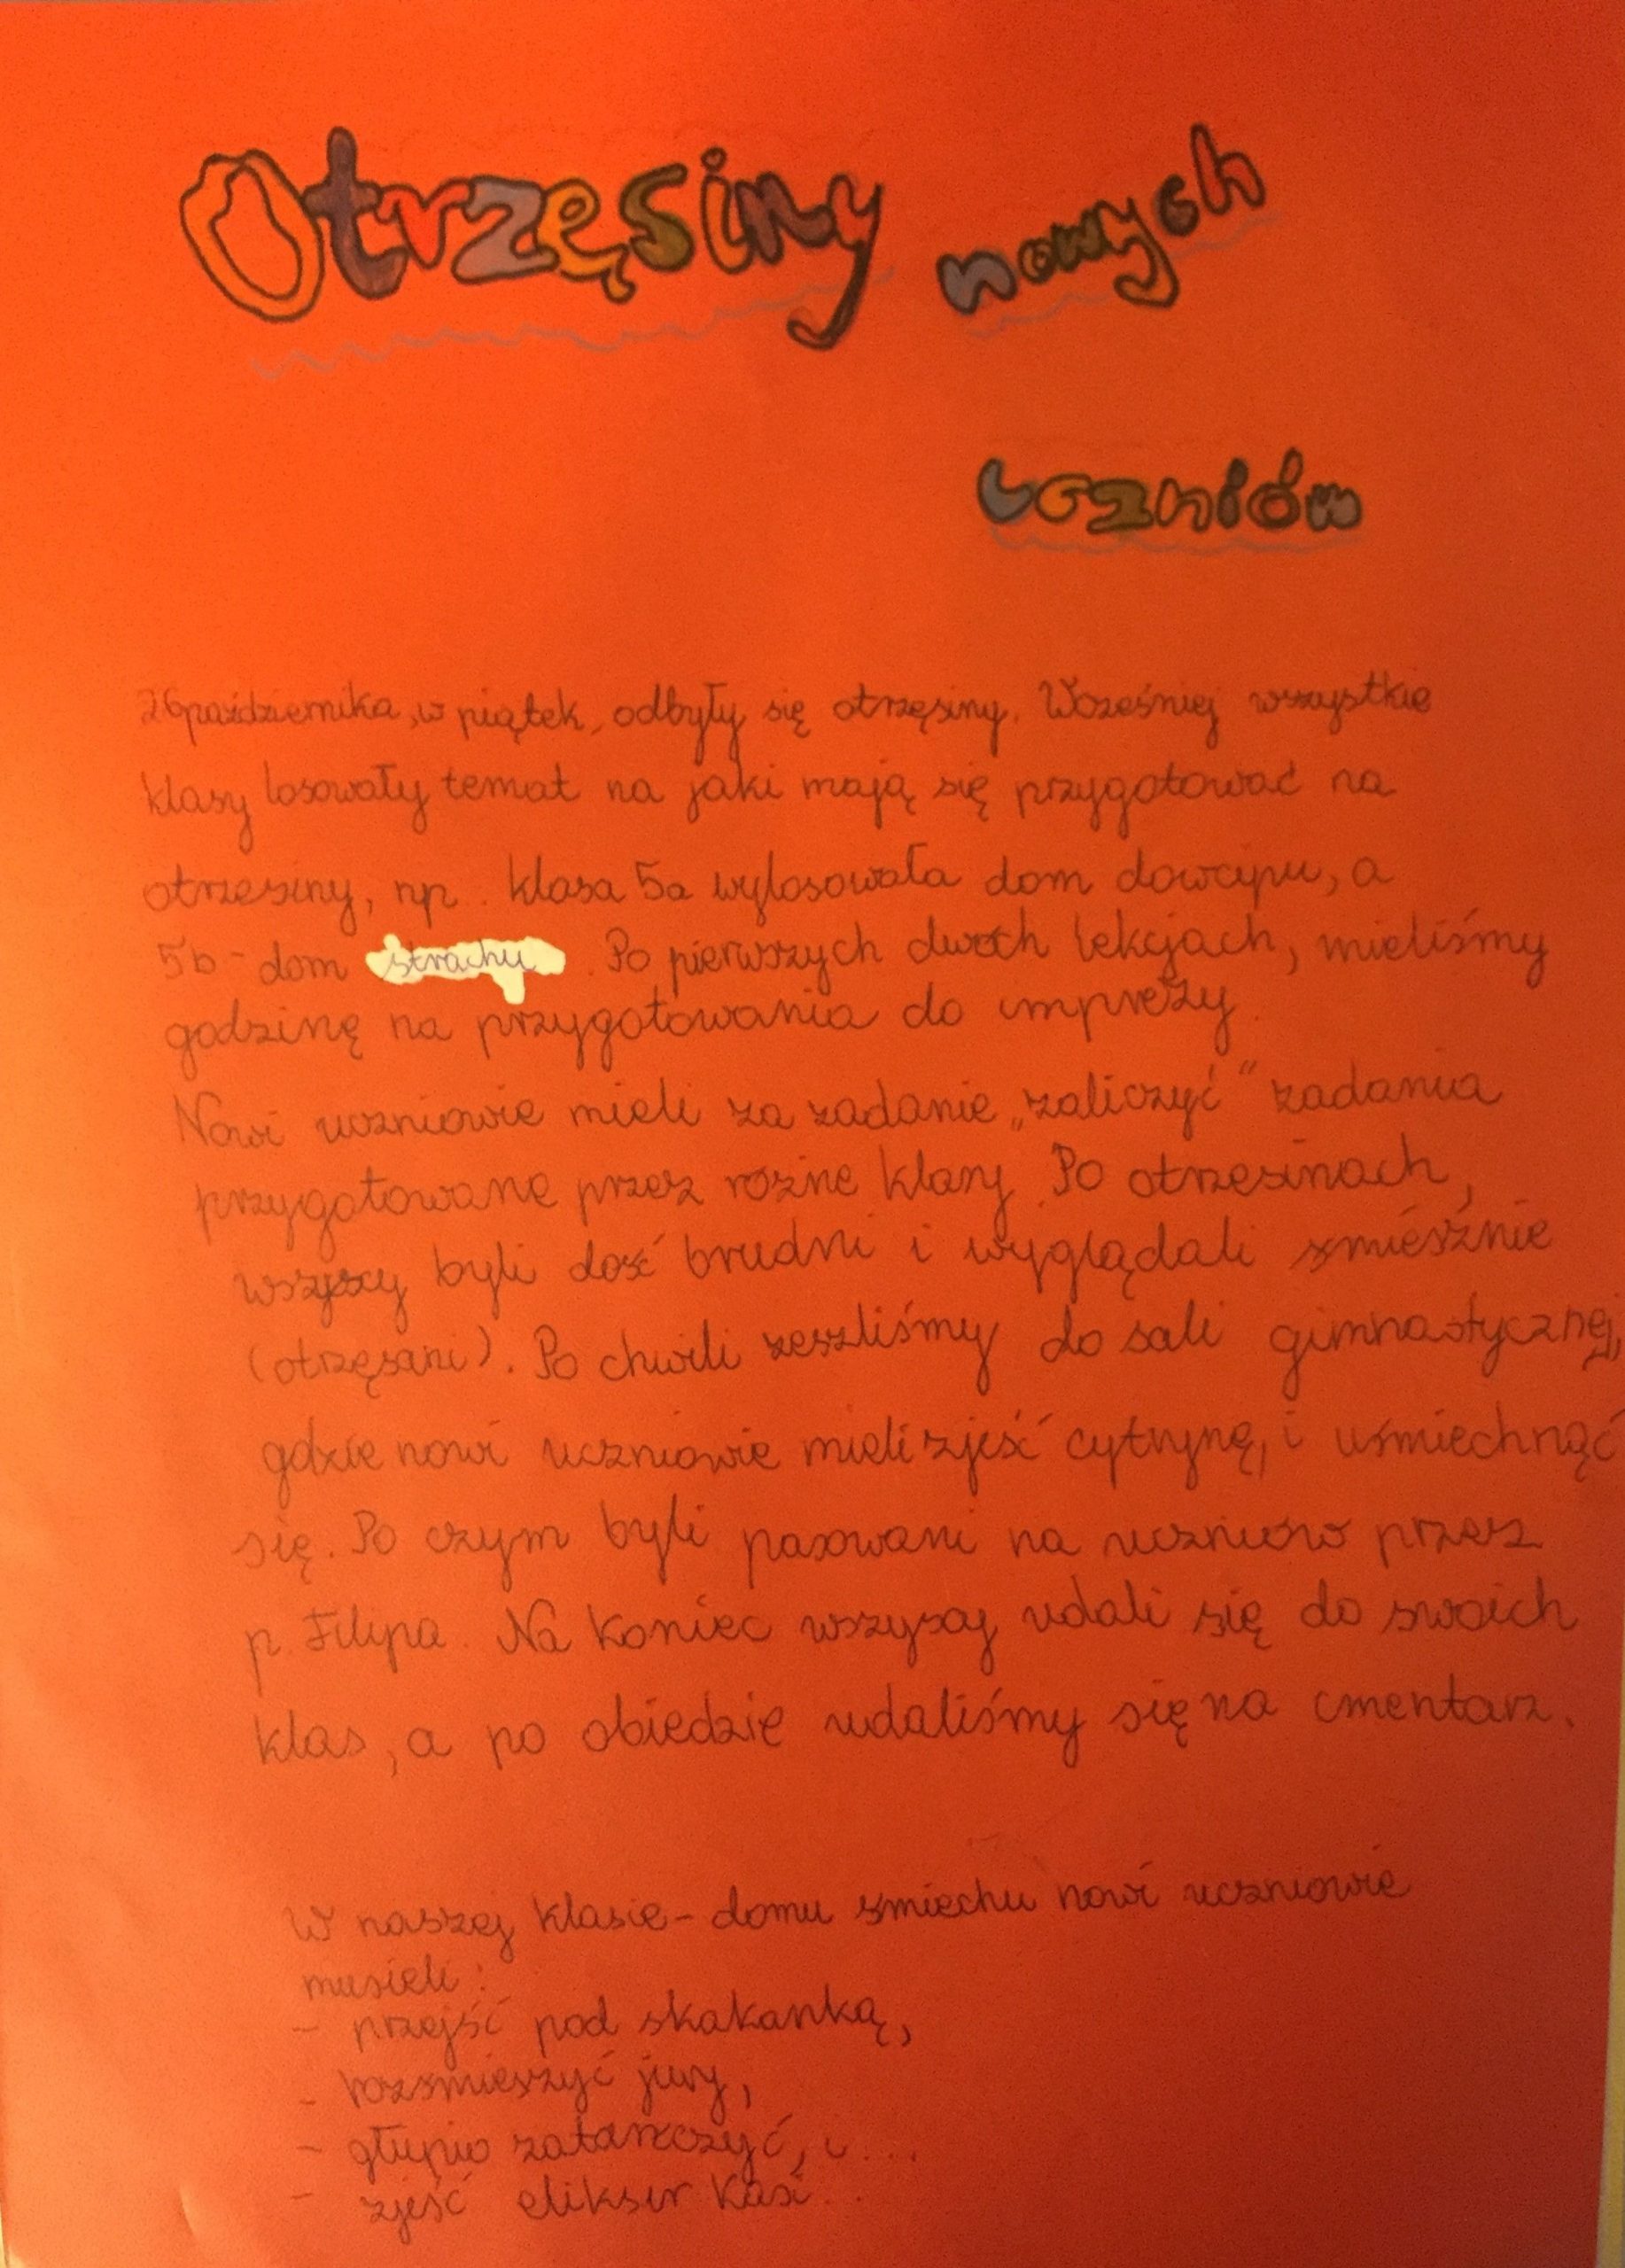 Otrzęsiny nowych
uczniów
26 października, w piątek, odbyły się otrzęsiny. Wcześniej wszystkie
klasy losowały temat na jaki mają się przygotować na
otrzesiny, np. klasa 5a wylosowała dom dowcipu, a
5b - dom strachu. Po pierwszych dwóch lekcjach, mieliśmy
godzinę na przygotowania do imprezy.
Nowi uczniowie mieli za zadanie „zaliczyć" zadania
przygotowane przez rózne klasy. Po otrzesinach,
wszyscy byli dość brudni i wyglądali smiésźnie
(otrzęsani). Po chwili zeszliśmy do sali gimnastycznej,
gdzie nowi uczniowie mieli zjeść cytrynę, i uśmiechnąć
się. Po czym byli pasowani na uczniów przez
p. Filipa. Na koniec wszyscy udali się do swoich
klas, a po obiedzie udaliśmy się na cmentarz.
W naszej klasie - domu smiechu nowi uczniowie
musieli:
- przejść pod skakanką,
- rozsmieszyć jury,
- głupio zatańczyć, i...
- zjeść eliksir Kasi...